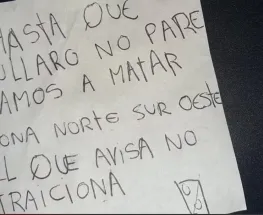 HASTA QUE
ULLARO NO PARE
AMOS A MATAR
ONA NORTE SUR OESTE
L QUE AVISA NO
TRAICIONA